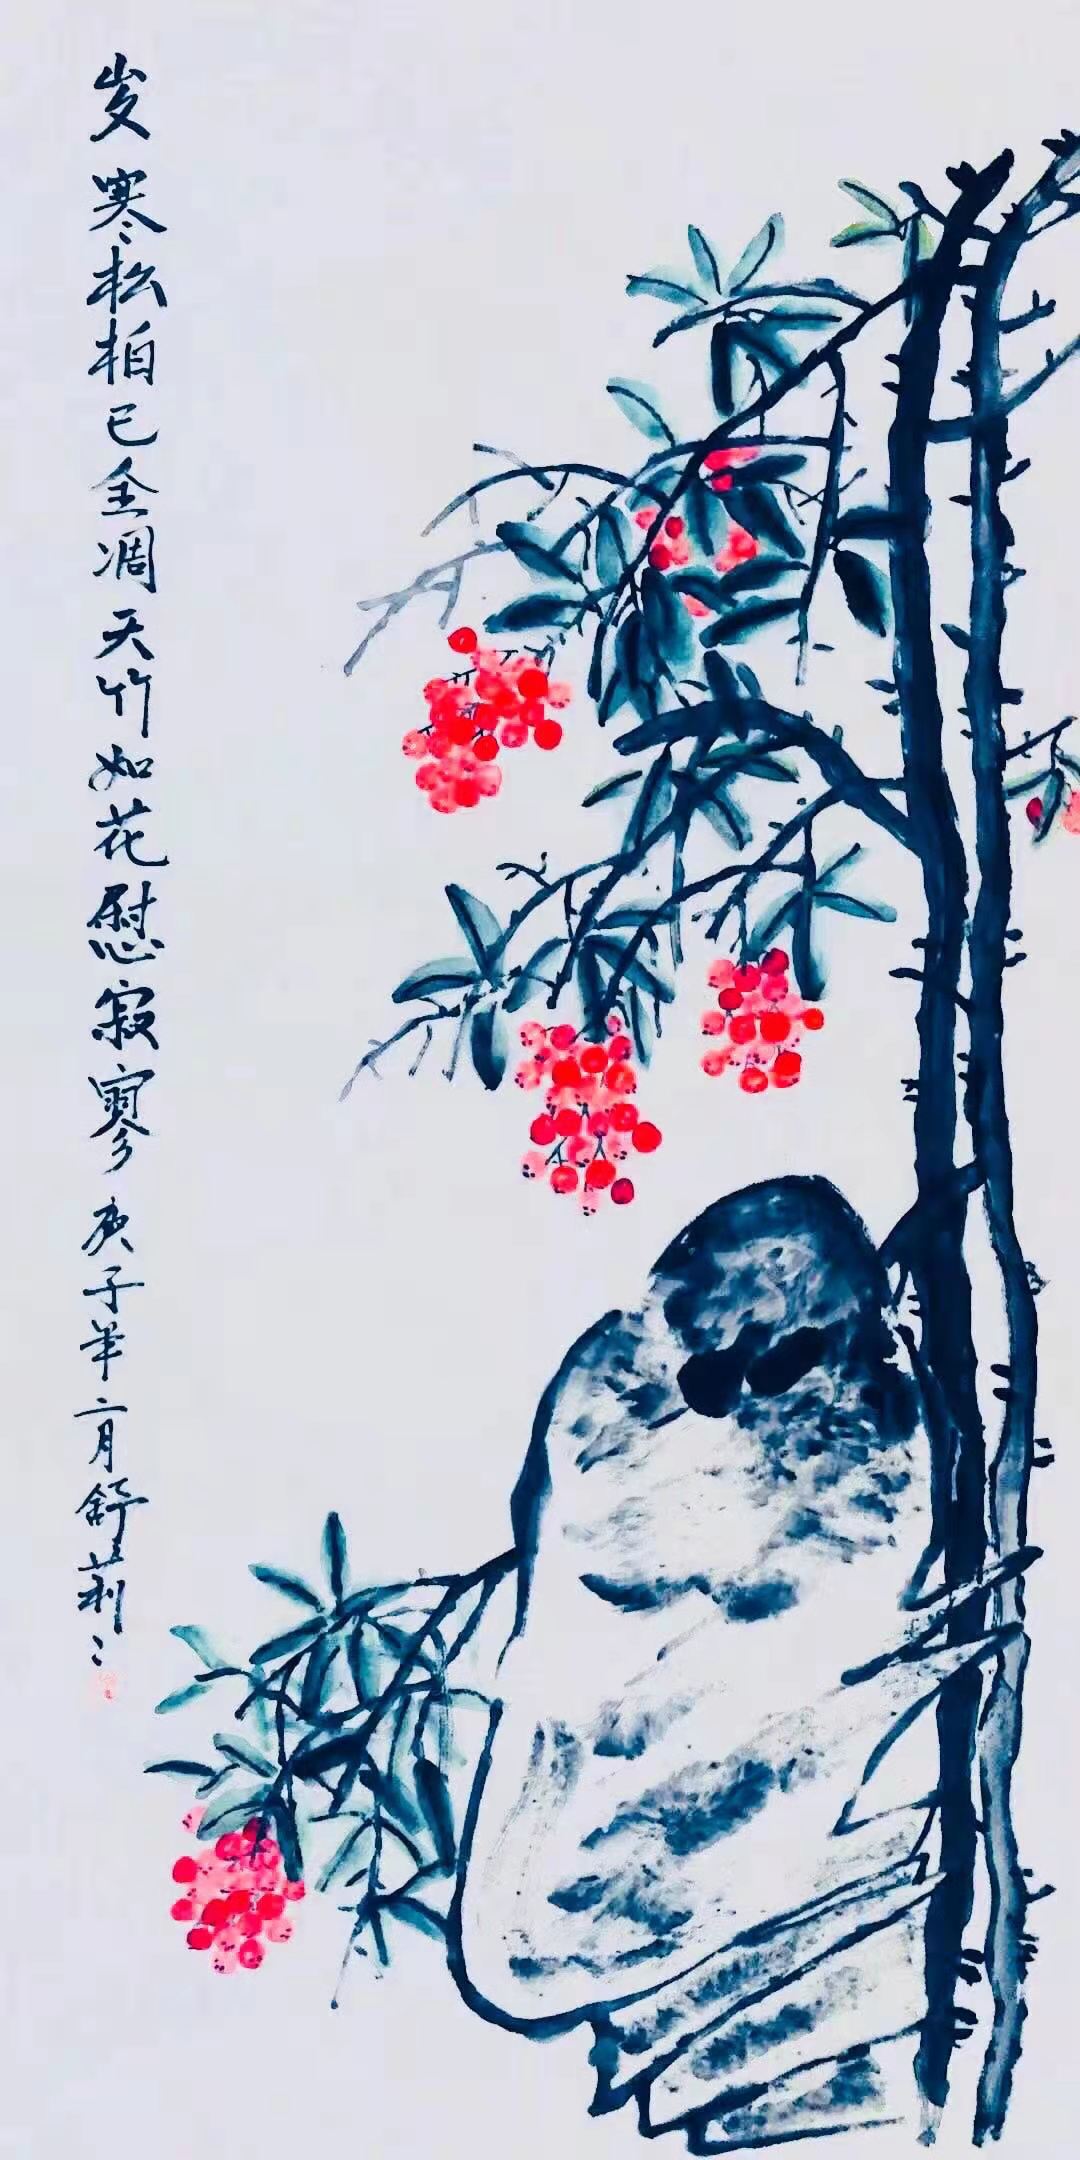 岁寒松柏已全凋天竹如花慰寂寥庚子年二月舒莉